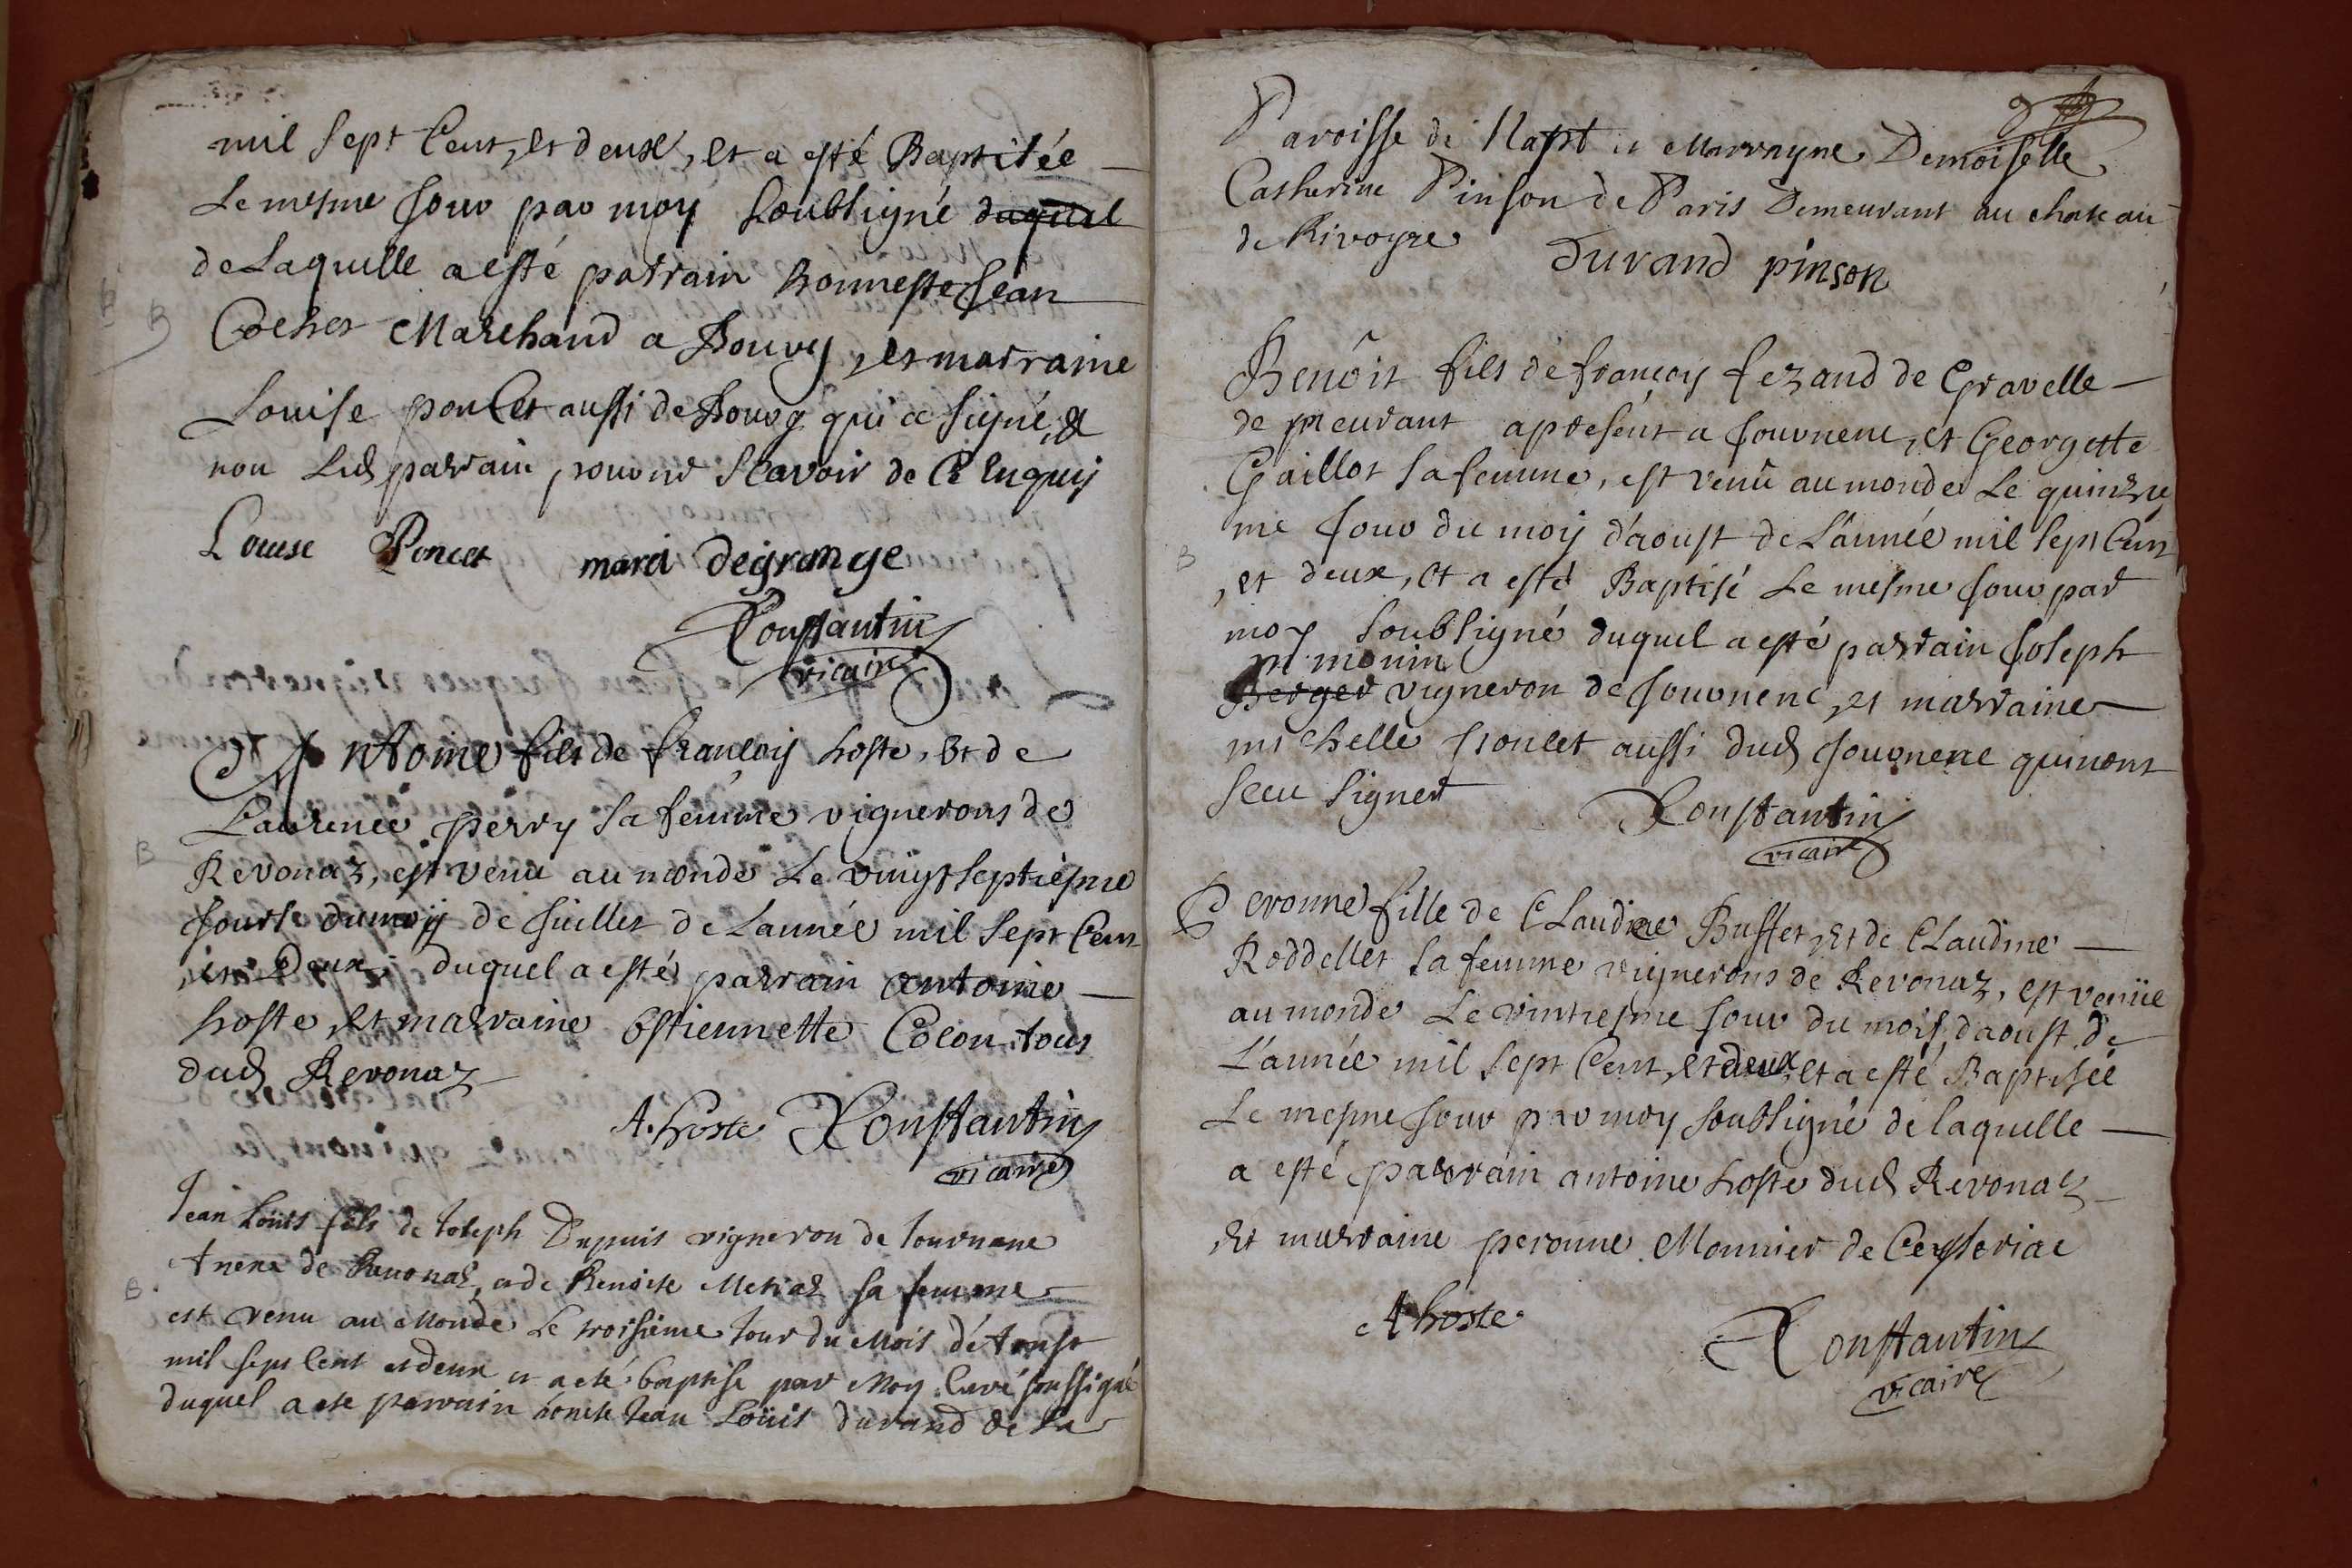 mil sept Cent, et deux, et a esté Baptisée
Le mesme Jour par moy soubsigné duquel
de Laquelle a esté parrain honneste Jean
Cochet Marchand a Bourg, et marraine
Louise poncet aussi de Bourg qui a signé, &
non Led parrain, pour ne scavoir de Ce enquis
Louise Poncet marci degrange
Constantin
vicaire
Antoine fils de françois hoste, et de
Laurence perry sa femme vignerons de
Revonaz, est venu au monde Le vingtseptiesme
Jour du moy de Juillet de Lannée mil sept Cent
, et Deux, duquel a esté parrain antoine
hoste, et marraine Estiennette Colon tous
dud Revonaz
A. hoste Constantin
vicaire
Jean Loüis fils de Joseph Dupuis vigneron de Journenc
Anexe de Revonas, et de Benoite Metraz sa femme
est venu au Monde Le troisieme Jour du Mois d'Aoust
mil sept Cent et deux et a eté baptisé par Moy Curé soussigné
duquel a ete parrain honete Jean Loüis durand de La
Paroisse de Napt et Marrayne Demoiselle
Catherine Pinson de Paris Demeurant au chateau
de Rivoyre
durand pinson
Benoit fils de françoy fezand de Gravelle
demeurant apresent a Journenc, et Georgette
Gaillot sa femme, est venu au monde Le quinzie
me Jour du moy d'aoust de L'année mil sept Cent
, et deux, et a esté Baptisé Le mesme Jour par
moy soubsigné duquel a esté parrain Joseph
monin
Berger vigneron de Journenc, et marraine
michelle poncet aussi dud Journenc qui nont
sceu signer
Constantin
vicaire
Peronne fille de Claudine Buffet, et de Claudine
Roddellet sa femme vignerons de Revonaz, est venüe
au monde Le vintiesme Jour du mois daoust de
L'année mil sept Cent, et deux, et a esté Baptisée
Le mesme Jour par moy soubsigné de laquelle
a esté parrain antoine hoste dud Revonaz
et marraine peronne Monnier de Ceyseriac
A hoste
Constantin
vicaire